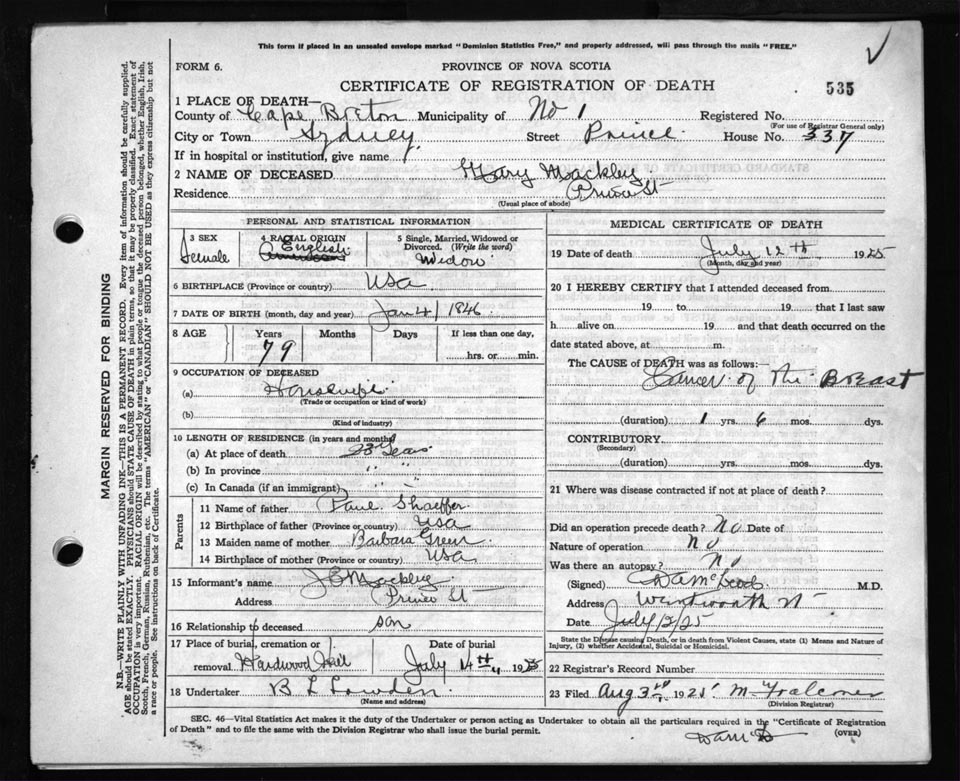 This form if placed in an unsealed envelope marked "Dominion Statistics Free," and properly addressed, will pass through the mails "FREE."
FORM 6.
PROVINCE OF NOVA SCOTIA
CERTIFICATE OF REGISTRATION OF DEATH
535
1 PLACE OF DEATH—
County of Cape Breton Municipality of No 1 Registered No.
(For use of Registrar General only)
City or Town Sydney. Street Prince. House No. 337
If in hospital or institution, give name
2 NAME OF DECEASED Mary Mackley
Residence Prince St
(Usual place of abode)
PERSONAL AND STATISTICAL INFORMATION
3 SEX
Female
4 RACIAL ORIGIN
English
5 Single, Married, Widowed or Divorced. (Write the word)
Widow
6 BIRTHPLACE (Province or country) USA
7 DATE OF BIRTH (month, day and year) Jan 4 1846
8 AGE Years Months Days If less than one day,
79 hrs. or min.
9 OCCUPATION OF DECEASED
(a) Housewife
(Trade or occupation or kind of work)
(b)
(Kind of industry)
10 LENGTH OF RESIDENCE (in years and months)
(a) At place of death 23 Years
(b) In province " "
(c) In Canada (if an immigrant) " "
Parents
11 Name of father Paul Shaeffer
12 Birthplace of father (Province or country) USA
13 Maiden name of mother Barbara Green
14 Birthplace of mother (Province or country) USA
15 Informant's name J E Mackley
Address Prince St
16 Relationship to deceased son
17 Place of burial, cremation or removal Hardwood Hill
Date of burial
July 14th 1925
18 Undertaker B L Lowden
(Name and address)
MEDICAL CERTIFICATE OF DEATH
19 Date of death July 12th 1925
(Month, day and year)
20 I HEREBY CERTIFY that I attended deceased from
19 to 19 that I last saw
h alive on 19 and that death occurred on the
date stated above, at m.
The CAUSE of DEATH was as follows:
Cancer of the Breast
(duration) 1 yrs. 6 mos. dys.
CONTRIBUTORY.
(Secondary)
(duration) yrs. mos. dys.
21 Where was disease contracted if not at place of death?
Did an operation precede death? No Date of
Nature of operation No
Was there an autopsy? No
(Signed) DA McLeod M.D.
Address Wentworth St
Date July 12/25
State the Disease causing Death, or in death from Violent Causes, state (1) Means and Nature of Injury, (2) whether Accidental, Suicidal or Homicidal.
22 Registrar's Record Number
23 Filed Aug 3rd 1925 M Falconer
(Division Registrar)
SEC. 46—Vital Statistics Act makes it the duty of the Undertaker or person acting as Undertaker to obtain all the particulars required in the "Certificate of Registration
of Death" and to file the same with the Division Registrar who shall issue the burial permit.
(OVER)
MARGIN RESERVED FOR BINDING
N.B.—WRITE PLAINLY WITH UNFADING INK—THIS IS A PERMANENT RECORD. Every item of information should be carefully supplied.
AGE should be stated EXACTLY. PHYSICIANS should STATE CAUSE OF DEATH in plain terms, so that it may be properly classified. Exact statement of
OCCUPATION is very important. RACIAL ORIGIN will be described by stating to what people or tongue the deceased person belonged, whether English, Irish,
Scotch, French, German, Russian, Ruthenian, etc. The terms "AMERICAN" or "CANADIAN" SHOULD NOT BE USED as they express citizenship but not
a race or people. See instructions on back of Certificate.